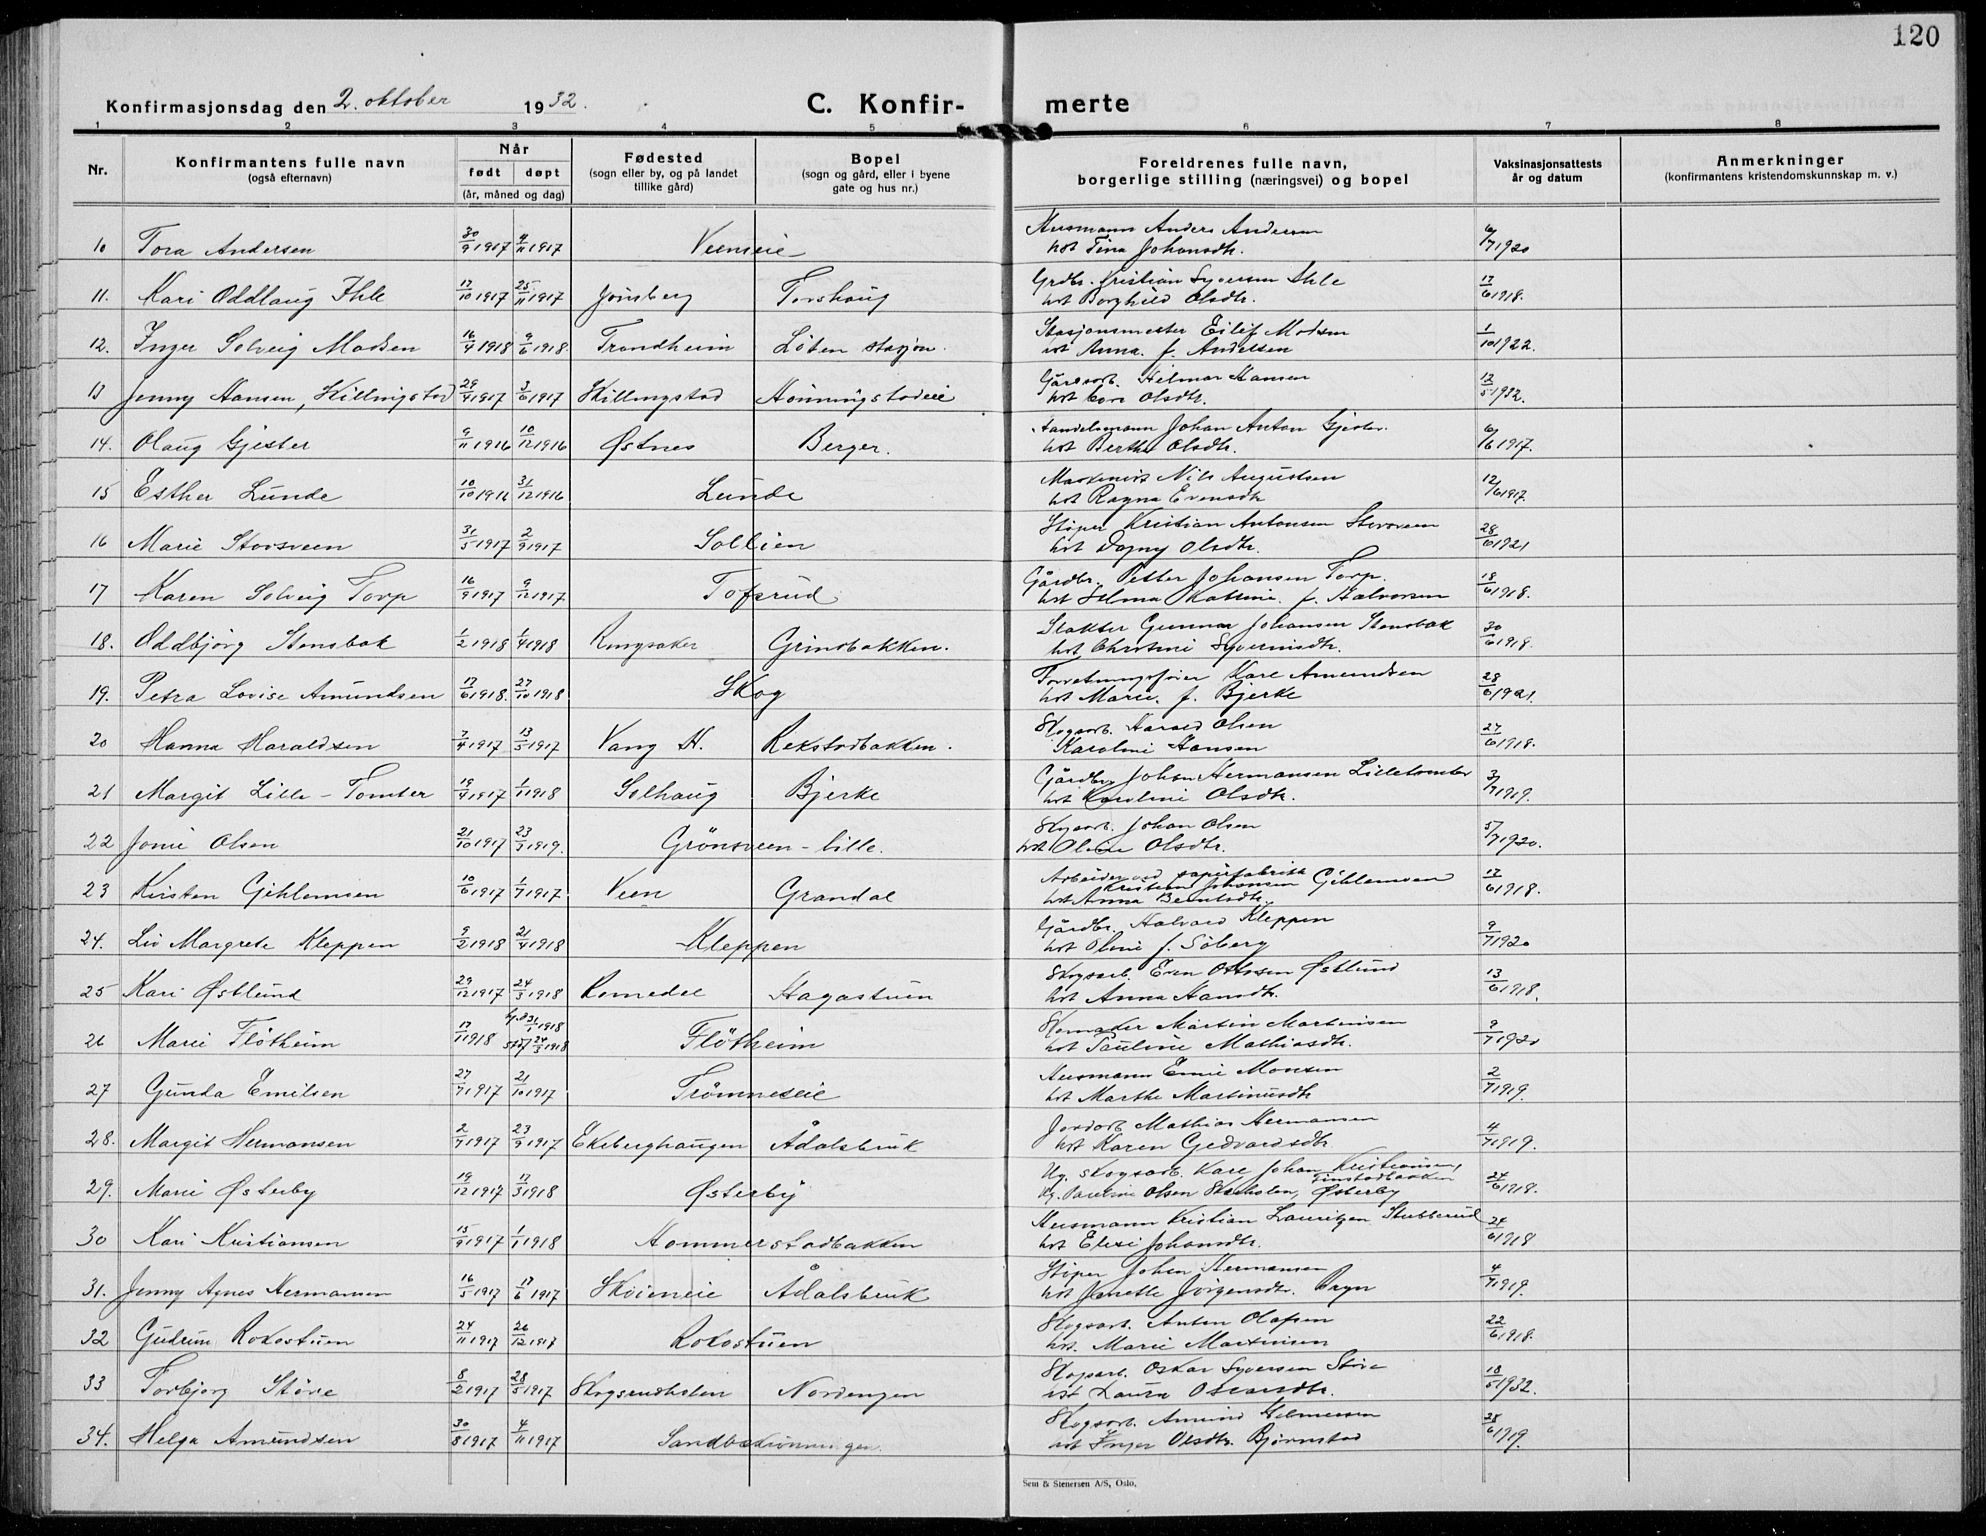 120
Konfirmasjonsdag den 2. oktober 1932.
C. Konfirmerte
1 2 3 4 5 6 7 8
Nr.
Konfirmantens fulle navn
(også efternavn)
Når
født døpt
(år, måned og dag)
Fødested
(sogn eller by, og på landet
tillike gård)
Bopel
(sogn og gård, eller i byene
gate og hus nr.)
Foreldrenes fulle navn,
borgerlige stilling (næringsvei) og bopel
Vaksinasjonsattests
år og datum
Anmerkninger
(konfirmantens kristendomskunnskap m. v.)
10 Tora Andersen 30/9 1917 4/11 1917 Veenseie Husmann Anders Andersen
hst Tina Johansdtr. 6/7 1920
11. Kari Oddlaug Ihle 17/10 1917 25/11 1917 Jønsberg Torshaug Grdbr. Kristian Syversen Ihle
hst Borghild Olsdtr. 17/6 1918.
12. Inger Solveig Madsen 16/4 1918 9/6 1918. Trondheim Løten stasjon. Stasjonsmester Eilif Madsen
hst Anna f. Andersen 1/10 1922.
13 Jenny Hansen, Killingstad 29/4 1917 3/6 1917 Skillingstad Hønningstadeie Gårdsarb. Hilmar Hansen
hst Olsdtr. 12/5 1932.
14. Olaug Gjester 9/11 1916 10/12 1916 Østnes Berger. Handelsmann Johan Anton Gjester.
hst Berthe Olsdtr. 6/6 1917.
15 Esther Lunde 10/10 1916 31/12 1916 Lunde Maskinist Nils Augustsen
hst Ragna Evensdtr 12/6 1917.
16 Marie Storsveen 31/5 1917 2/9 1917 Sollien Støper Kristian Antonsen Storsveen
hst Dagny Olsdtr. 28/6 1921
17 Karen Solveig Torp 16/9 1917 9/12 1917 Tofsrud Gårdbr. Petter Johansen Torp.
hst Helma Katrine f. Halvorsen 18/6 1918.
18. Oddbjørg Stensbak 1/2 1918 1/4 1918 Ringsaker Grindbakken. Slakter Gunnar Johansen Stensbak
hst Christine Syverinsdtr. 30/6 1918.
19. Petra Lovise Amundsen 17/6 1918. 27/10 1918. Skog Forretningsfører Kare Amundsen
hst Marie f. Bjerke 28/6 1921.
20 Hanna Haraldsen 7/4 1917 13/5 1917 Vang H. Rekstadbakken. Skogsarb. Harald Olsen
Karoline Hansen 27/6 1918.
21 Margit Lille-Tomter 19/9 1917 1/1 1918 Solhaug Bjerke Gårdbr. Johan Hermansen Lilletomter
hst Karoline Olsdtr. 3/7 1919.
22 Jonie Olsen 21/10 1917 23/3 1919. Grønsveen-lille. Skogsarb. Johan Olsen
hst Oline Olsdtr. 5/7 1920.
23 Kirsten Gihlemsen 10/6 1917 1/7 1917. Veen Grandal Arbeider ved papirfabrikk
Kristian Johansen Gihlemsen
hst Anna Berntsdtr. 17/6 1918.
24. Liv Margrete Kleppen 9/2 1918 21/4 1918 Kleppen Gårdbr. Halvard Kleppen
hst Oline f. Søberg 9/7 1920
25 Kari Østlund 29/12 1917 24/3 1918 Romedal Hagastuen Skogsarb. Even Ottosen Østlund
hst Anna Hansdtr. 13/6 1918.
26 Marie Fløtheim 17/1 1918 hj.d 31/1 1918
stdf 24/3 1918 Fløtheim Skomaker Martin Martinsen
hst Pauline Mathiasdtr. 9/7 1920
27 Gunda Emilsen 27/7 1917 21/10 1917 Trømneseie Husmann Emil Monsen
hst Marthe Martinusdtr 2/7 1919.
28. Margit Hermansen 2/7 1917 23/9 1917 Ekeberghaugen Ådalsbruk Jordarb. Mathias Hermansen
hst Karen Gedvardsdtr 4/7 1919.
29. Marie Østerby 19/12 1917 17/3 1918 Østerby Ug. skogsarb. Karl Johan Kristiansen,
Pauline Olsen Østerby 24/6 1918.
30 Kari Kristiansen 15/9 1917 1/1 1918 Hommerstadbakken Husmann Kristian Lauritzen Stubberud
hst Elise Johansdtr. 24/6 1918
31. Jenny Agnes Hermansen 16/5 1917 17/6 1917 Skøieneie Ådalsbruk Støper Johan Hermansen
hst Janette Jørgensdtr. Bryn 4/7 1919.
32 Gudrun Rokostuen 24/11 1917 26/12 1917 Rokostuen Skogsarb. Anton Olafsen
hst. Marie Martinsen 22/6 1918.
33 Torbjørg Støve 8/2 1917 28/5 1917 Skogsrudholen Nordengen Skogsarb. Oskar Syversen Støve
hst Laura Osvandtr. 18/5 1932.
34. Helga Amundsen 30/8 1917 4/11 1917 Skogsarb. Amund Helmersen
hst Inger Olsdtr. Bjørnstad 28/6 1919.
Sem & Stenersen A/S, Oslo.